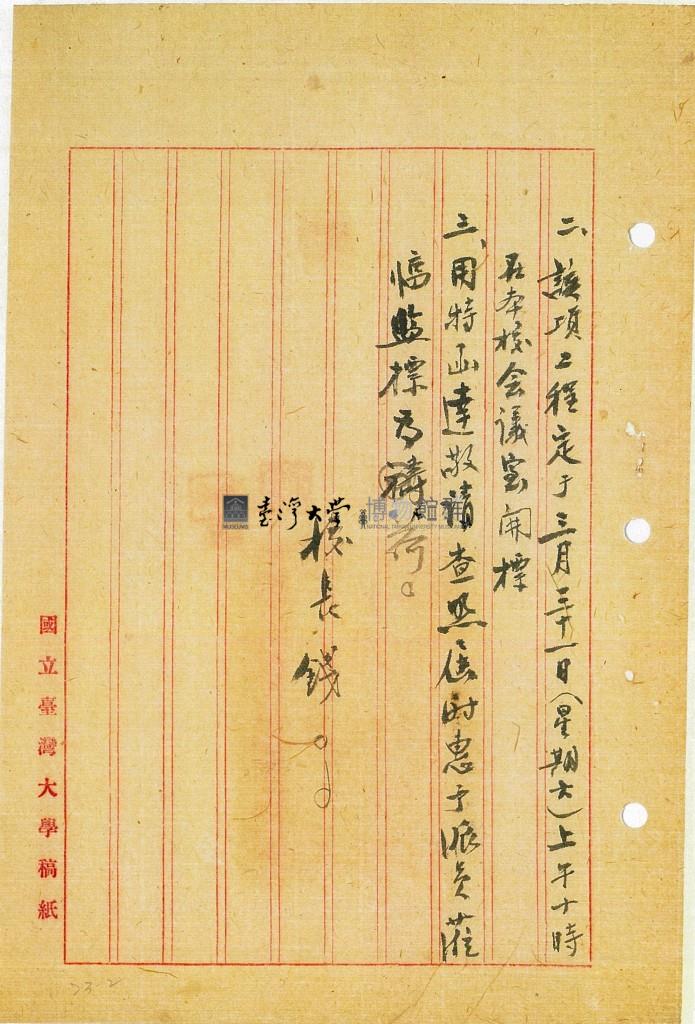 二、該項工程定于三月三十一日(星期六)上午十時
在本校会議室開標
三、用特函達敬請查照屆时惠予派員蒞
臨監標为禱
校長錢○○
臺灣大學 博物館群
國立臺灣大學稿紙